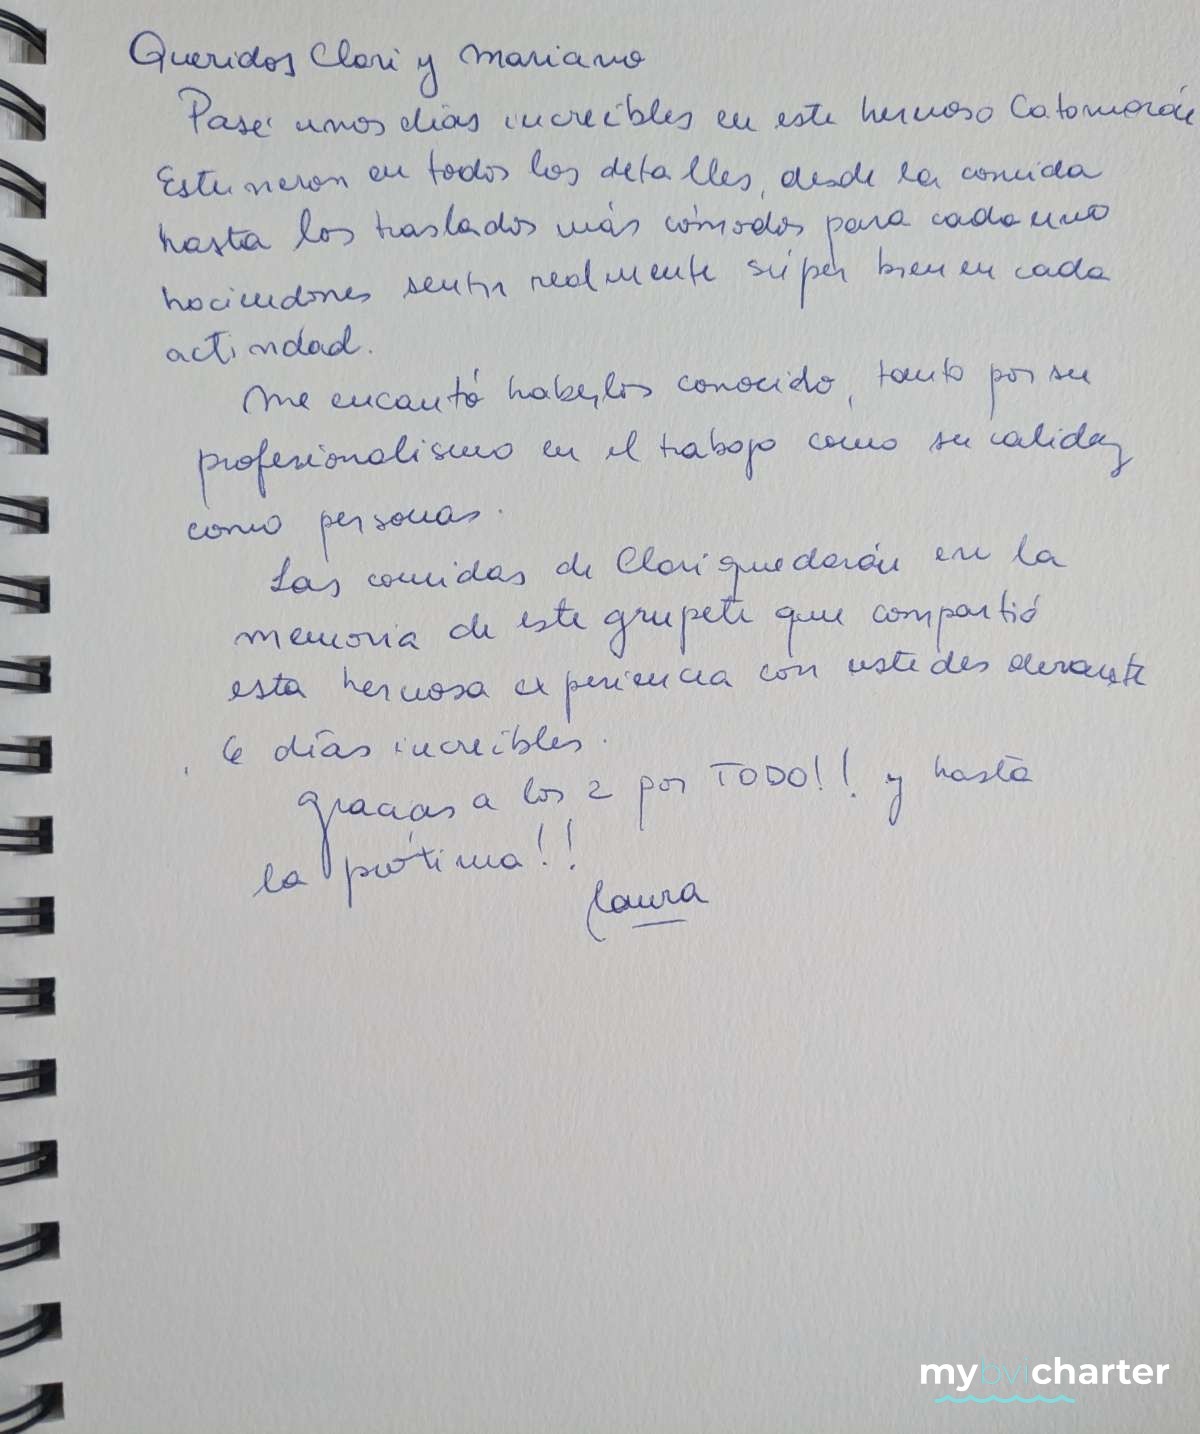 Queridos Clari y Mariano
Pasé unos días increíbles en este hermoso Catamarán
Estuvieron en todos los detalles, desde la comida
hasta los traslados más cómodos para cada uno
haciendonos sentir realmente súper bien en cada
actividad.
Me encantó haberlos conocido, tanto por su
profesionalismo en el trabajo como su calidez
como personas.
Las comidas de Clari quedarán en la
memoria de este grupete que compartió
esta hermosa experiencia con ustedes durante
6 días increíbles.
gracias a los 2 por TODO!! y hasta
la próxima!!
Laura
mybvicharter